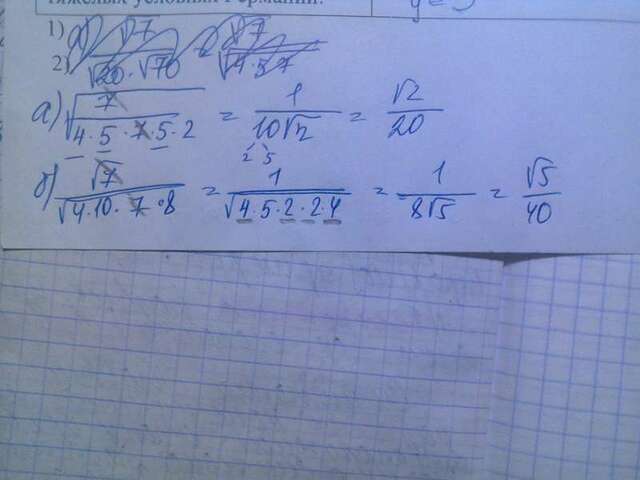 тяжелых условиях Германии.
1)
2)
а) √(7/(4·5·7·5·2)) = 1/(10√2) = √2/20
2 5
б) √7/√(4·10·7·8) = 1/√(4·5·2·2·4) = 1/(8√5) = √5/40